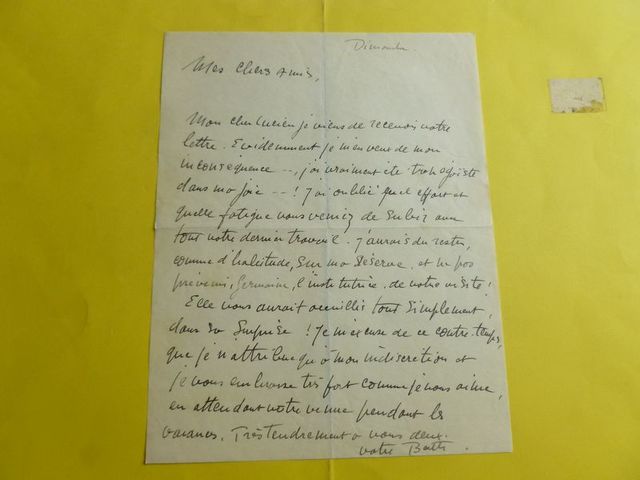 Dimanche.
Mes chers amis,
Mon cher Lucien je viens de recevoir votre
lettre. Evidemment je m'en veux de mon
inconséquence --, j'ai vraiment été trop égoïste
dans ma joie --! J'ai oublié quel effort et
quelle fatigue vous veniez de subir avec
tout votre dernier travail. J'aurais du rester,
comme d'habitude, sur ma réserve. et ne pas
prévenir, Germaine, l'institutrice. de votre visite!
Elle vous aurait accueillis tout simplement,
dans sa surprise! Je m'excuse de ce contre-temps,
que je n'attribue qu'à mon indiscrétion et
je vous embrasse très fort comme je vous aime,
en attendant votre venue pendant les
vacances. Très tendrement à vous deux.
votre